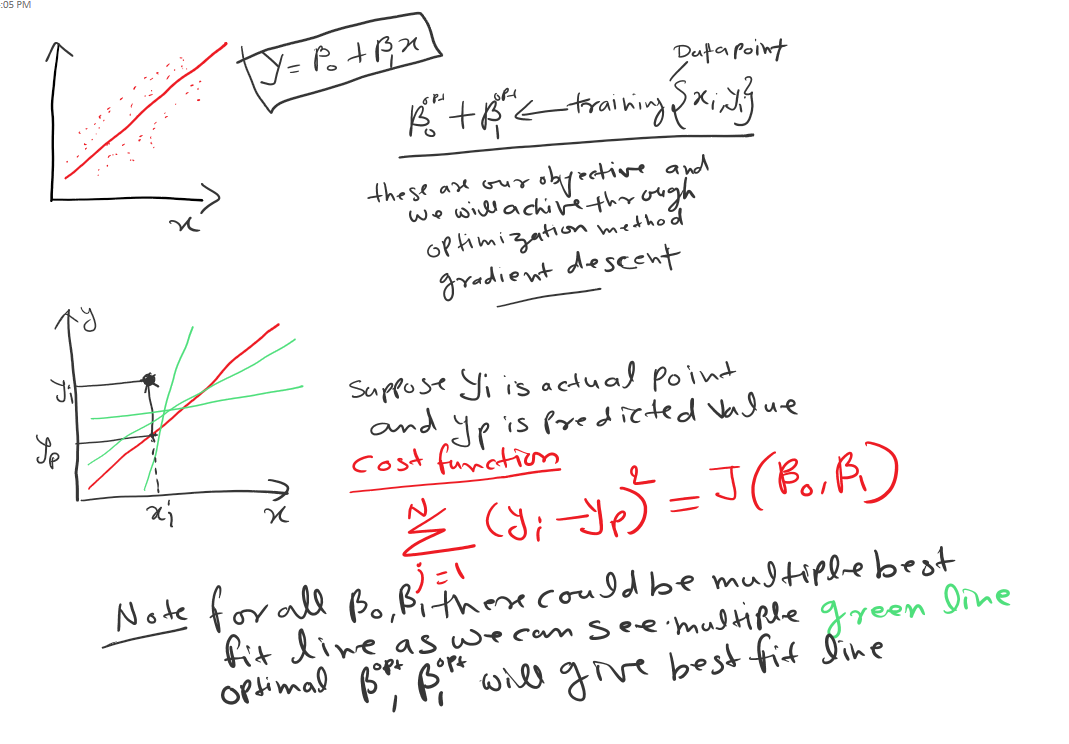 :05 PM
y = β₀ + β₁x
Datapoint
β₀ᵒᵖᵗ + β₁ᵒᵖᵗ ← training {xi, yi}
these are our objective and
we will achive through
optimization method
gradient descent
x
y
yi
yp
xi
x
Suppose yi is actual point
and yp is predicted value
Cost function
N
∑ (yi - yp)² = J(β₀, β₁)
j=1
Note for all β₀, β₁ there could be multiple best
fit line as we can see multiple green line
optimal βᵒᵖᵗ, β₁ᵒᵖᵗ will give best fit line